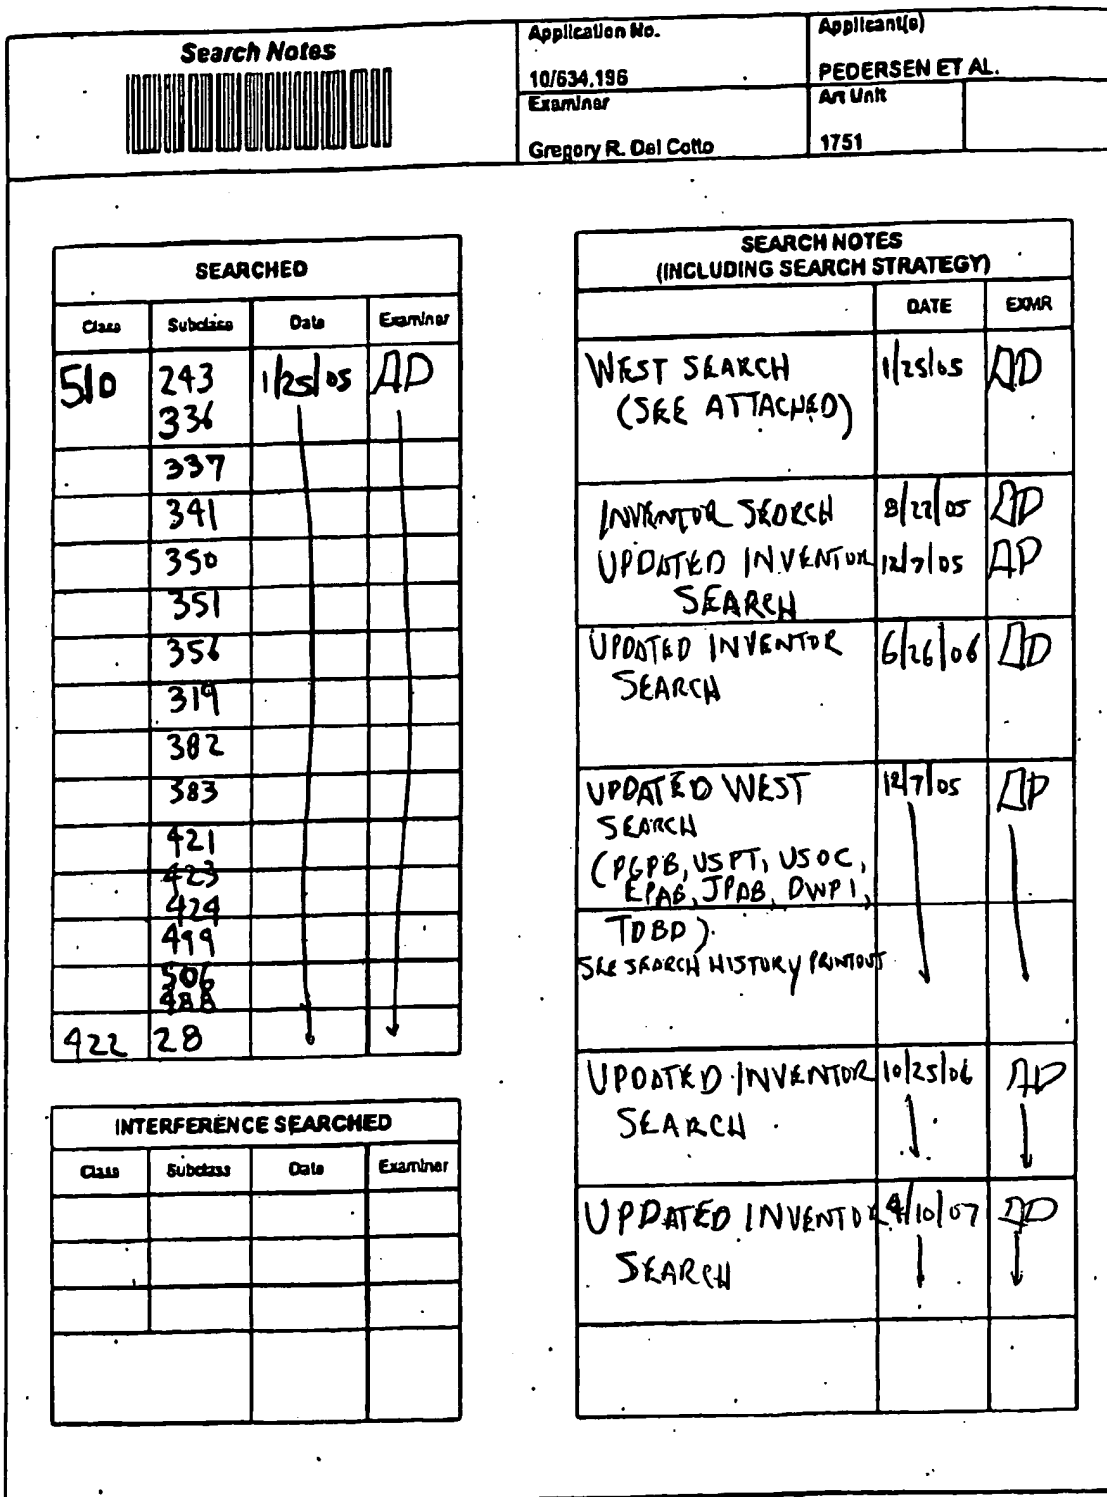 Search Notes
Application No.
Applicant(s)
10/634,196
PEDERSEN ET AL.
Examiner
Art Unit
Gregory R. Del Cotto
1751
SEARCHED
Class Subclass Date Examiner
510 243 1/25/05
336
337
341
350
351
356
319
382
383
421
423
424
499
506
488
422 28
INTERFERENCE SEARCHED
Class Subclass Date Examiner
SEARCH NOTES
(INCLUDING SEARCH STRATEGY)
DATE EXMR
WEST SEARCH 1/25/05
(SEE ATTACHED)
INVENTOR SEARCH 8/22/05
UPDATED INVENTOR 12/7/05
SEARCH
UPDATED INVENTOR 6/26/06
SEARCH
UPDATED WEST 12/7/05
SEARCH
(PGPB, USPT, USOC,
EPAB, JPAB, DWPI,
TDBD).
SEE SEARCH HISTORY PRINTOUT
UPDATED INVENTOR 10/25/06
SEARCH
UPDATED INVENTOR 4/10/07
SEARCH